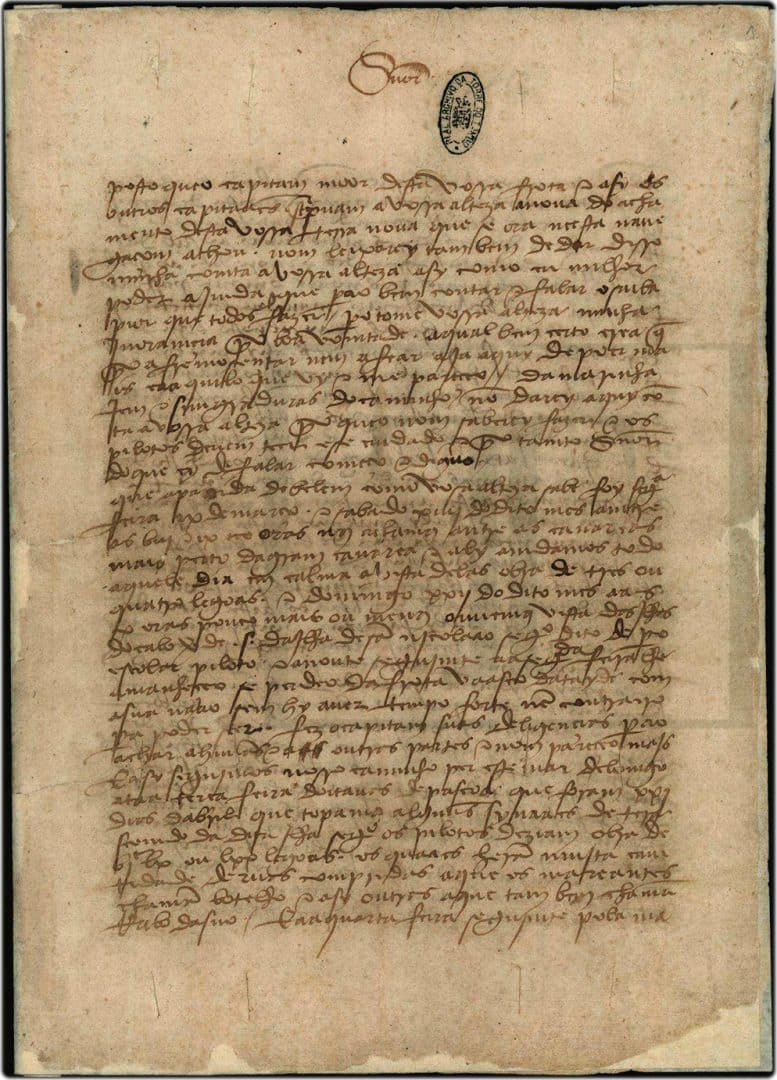 Snõr
REAL ARCHIVO DA TORRE DO TOMBO
posto queo capitam moor desta vossa frota e asy os
outros capitaães screpuam avossa alteza anoua do acha
mento desta vossa terra noua que se ora neesta naue
gaçam achou. nom leixarey tambem de dar disso
minha comta avossa alteza asy como eu milhor
poder ajmda que perao bem contar e falar o saiba
pior que todos fazer / pero tome vossa alteza minha
jnoramçia por boa vomtade. aqual bem çerto crea q̃
por afremosentar nem afear aja aquy de poer ma
is ca aquilo que vy e me pareçeo / da marinha
jem e simgraduras do caminho nõ darey aquy cõ
ta avossa alteza por que o nom saberey fazer e os
pilotos deuem teer ese cuidado e por tanto Snõr
do que ey de falar começo e diguo /
que apartida de belem como vosa alteza sabe foy segª
feira ix de março. e sabado xiiij do dito mes amtre
as biij e ix oras nos achamos antre as canareas
mais perto da gram canarea e aly amdamos todo
aquele dia em calma avista delas obra de tres ou
quatro legoas. e domingo xxij do dito mes aas
x oras pouco mais ou menos ouuemos vista das jlhas
do cabo verde .s. da jlha de sã njcolaao segº dito de pº
escolar piloto. e anoute segujmte aasegda feira lhe
amanheceo se perdeo da frota vaasco datayde com
asua naao sem hy auer tempo forte nẽ contrairo
pera poder seer. fez ocapitam suas deligençias perao
achar ahuũas e outras partes e nom pareçeo majs
E asy segujmos nosso caminho per este mar delomgo
ataa terça feira doitauas de pascoa que foram xxj
dias dabril que topamos alguũs synaaes de tera
seemdo da dita jlha segº os pilotos deziam obra de
bjᶜ lx ou lxx legoas. os quaaes herã mujta cam
tidade deruas compridas aque os mareantes
chamã botelho e asy outras aque tam bem chamã
rrabo dasno / E aaquarta feira segujmte pola ma